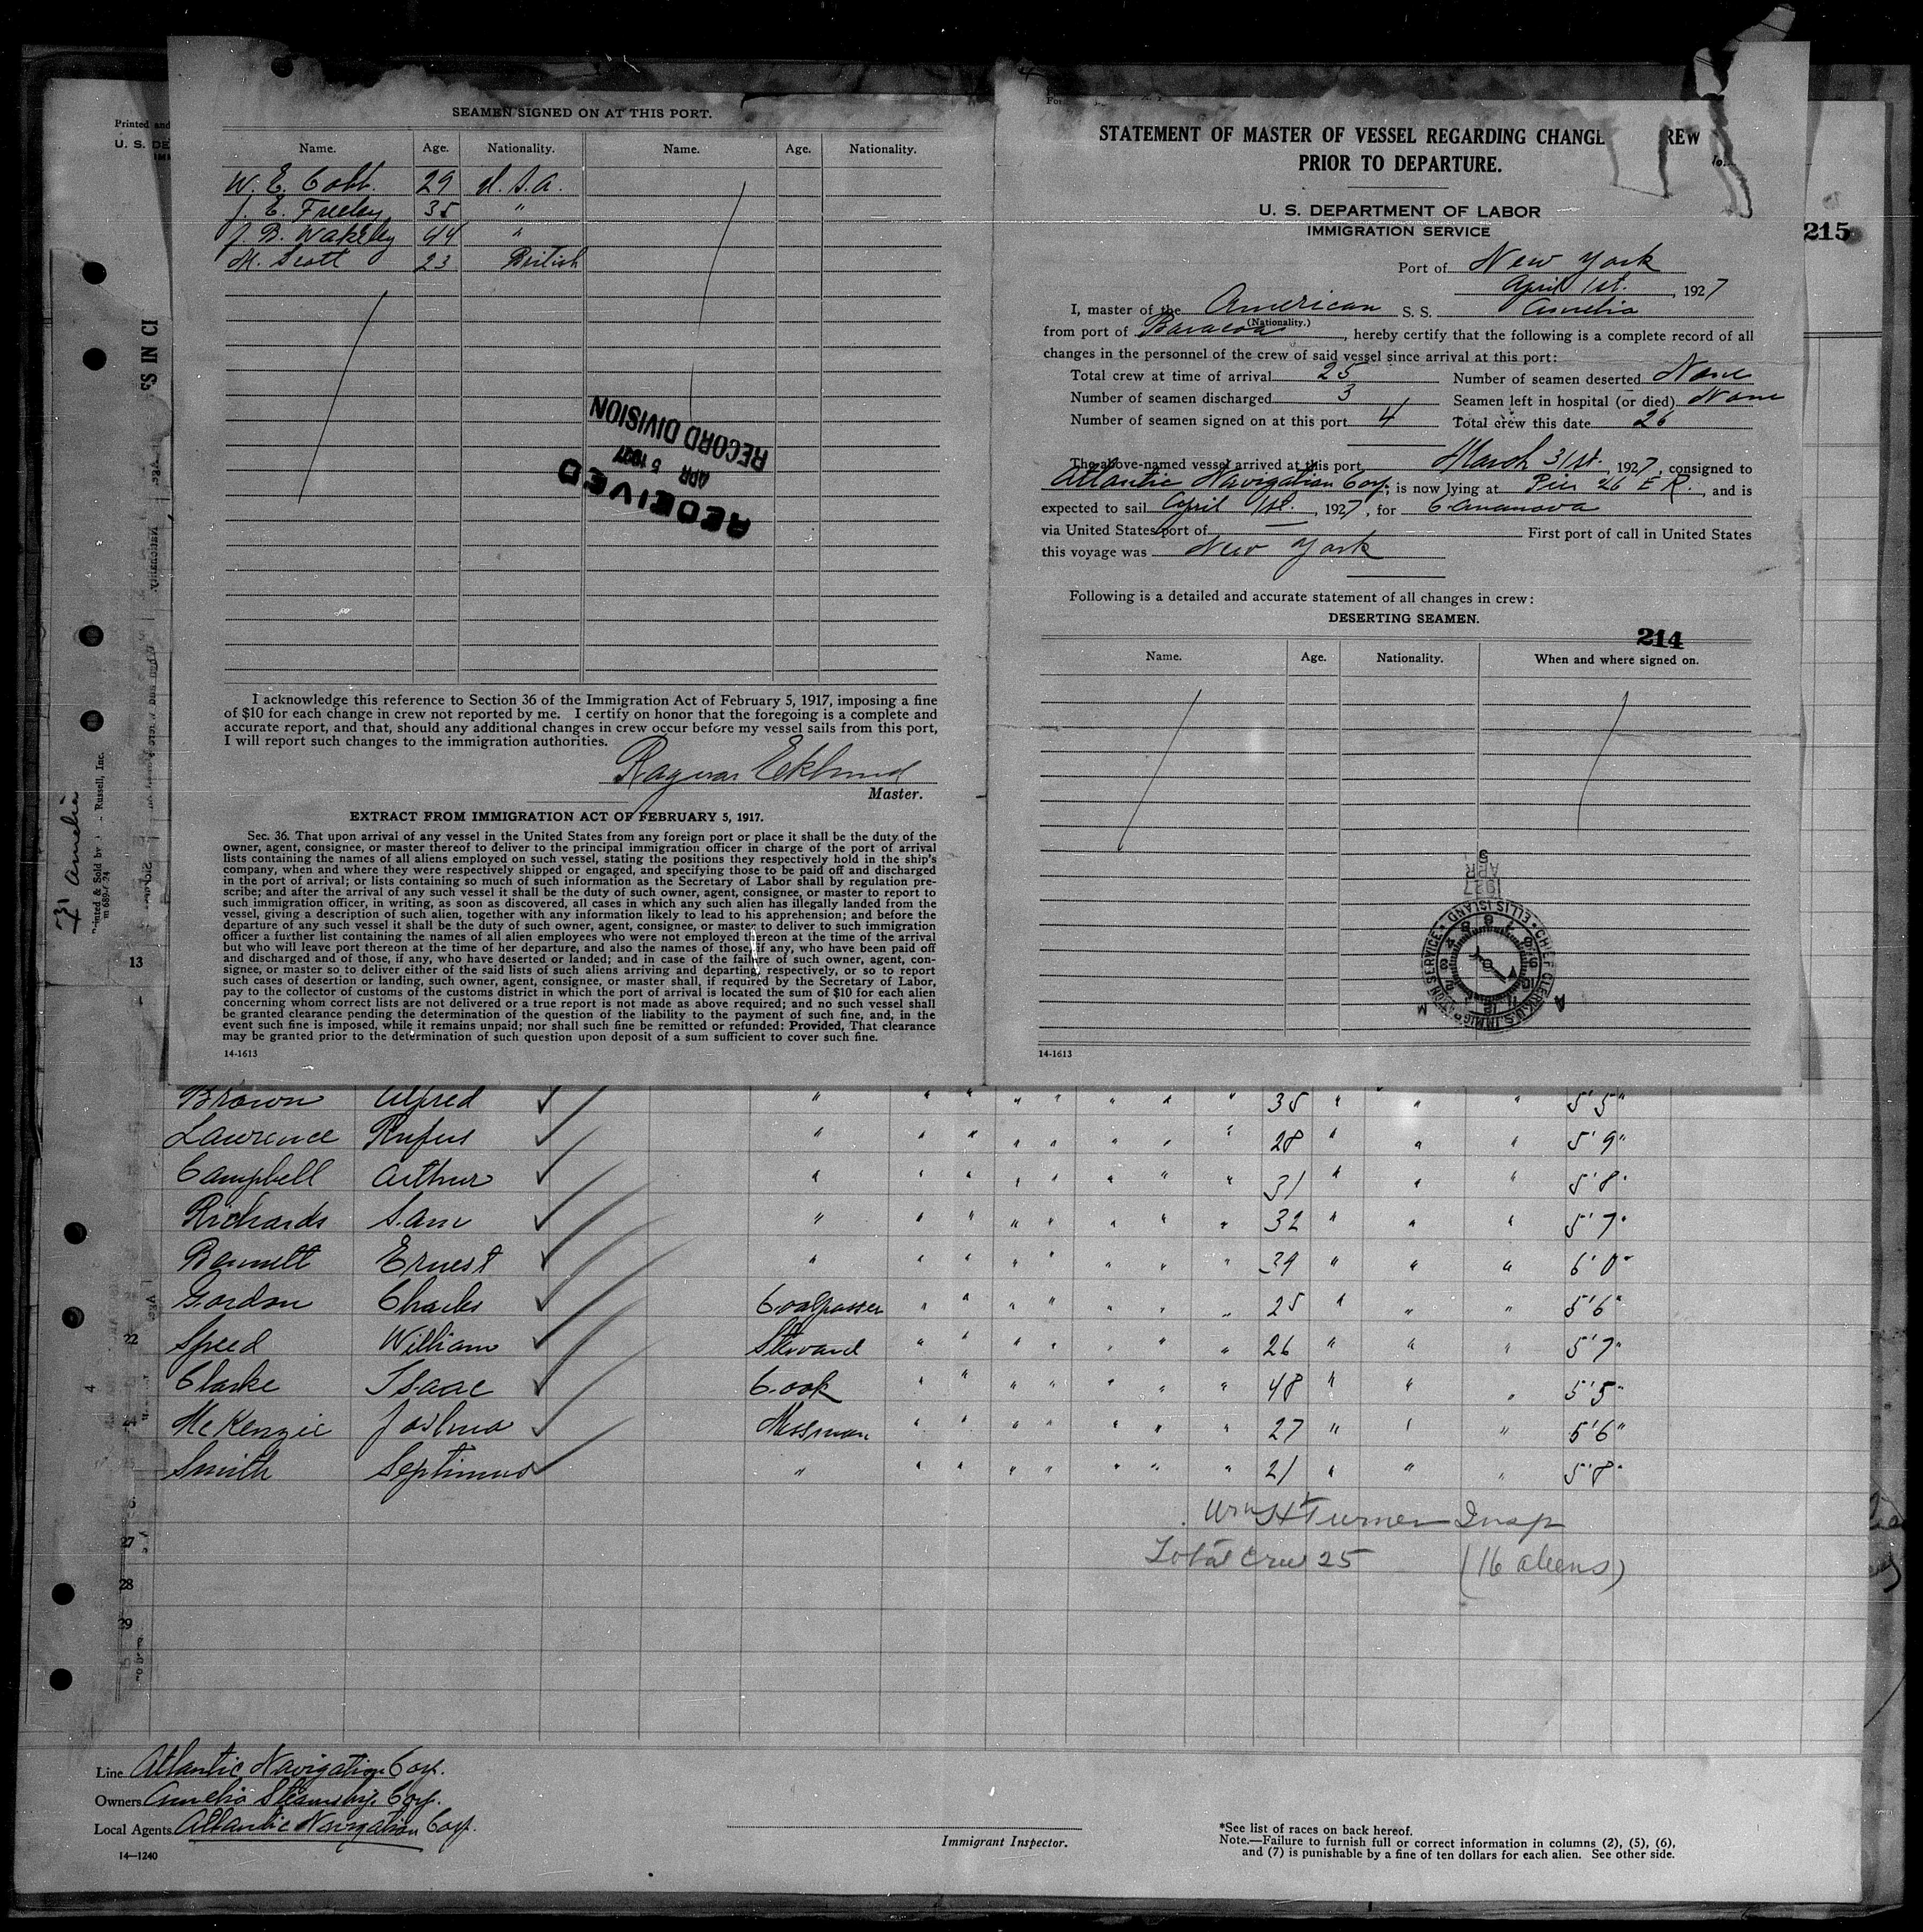 SEAMEN SIGNED ON AT THIS PORT.
Name. Age. Nationality. Name. Age. Nationality.
W. E. Cobb. 29 U.S.A.
J. E. Freeley 35 "
J. B. Wakeley 44 "
M. Scott 23 British
RECEIVED
APR 5 1927
RECORD DIVISION
I acknowledge this reference to Section 36 of the Immigration Act of February 5, 1917, imposing a fine
of $10 for each change in crew not reported by me. I certify on honor that the foregoing is a complete and
accurate report, and that, should any additional changes in crew occur before my vessel sails from this port,
I will report such changes to the immigration authorities.
Ragnar Eklund
Master.
EXTRACT FROM IMMIGRATION ACT OF FEBRUARY 5, 1917.
Sec. 36. That upon arrival of any vessel in the United States from any foreign port or place it shall be the duty of the
owner, agent, consignee, or master thereof to deliver to the principal immigration officer in charge of the port of arrival
lists containing the names of all aliens employed on such vessel, stating the positions they respectively hold in the ship's
company, when and where they were respectively shipped or engaged, and specifying those to be paid off and discharged
in the port of arrival; or lists containing so much of such information as the Secretary of Labor shall by regulation pre-
scribe; and after the arrival of any such vessel it shall be the duty of such owner, agent, consignee, or master to report to
such immigration officer, in writing, as soon as discovered, all cases in which any such alien has illegally landed from the
vessel, giving a description of such alien, together with any information likely to lead to his apprehension; and before the
departure of any such vessel it shall be the duty of such owner, agent, consignee, or master to deliver to such immigration
officer a further list containing the names of all alien employees who were not employed thereon at the time of the arrival
but who will leave port thereon at the time of her departure, and also the names of those, if any, who have been paid off
and discharged and of those, if any, who have deserted or landed; and in case of the failure of such owner, agent, con-
signee, or master so to deliver either of the said lists of such aliens arriving and departing, respectively, or so to report
such cases of desertion or landing, such owner, agent, consignee, or master shall, if required by the Secretary of Labor,
pay to the collector of customs of the customs district in which the port of arrival is located the sum of $10 for each alien
concerning whom correct lists are not delivered or a true report is not made as above required; and no such vessel shall
be granted clearance pending the determination of the question of the liability to the payment of such fine, and, in the
event such fine is imposed, while it remains unpaid; nor shall such fine be remitted or refunded: Provided, That clearance
may be granted prior to the determination of such question upon deposit of a sum sufficient to cover such fine.
14-1613
STATEMENT OF MASTER OF VESSEL REGARDING CHANGE REW
PRIOR TO DEPARTURE.
U. S. DEPARTMENT OF LABOR
IMMIGRATION SERVICE
215
Port of New York
April 1st. , 1927
I, master of the American S. S. Amelia
(Nationality.)
from port of Baracoa , hereby certify that the following is a complete record of all
changes in the personnel of the crew of said vessel since arrival at this port:
Total crew at time of arrival 25 Number of seamen deserted None
Number of seamen discharged 3 Seamen left in hospital (or died) None
Number of seamen signed on at this port 4 Total crew this date 26
The above-named vessel arrived at this port March 31st. , 1927, consigned to
Atlantic Navigation Corp; is now lying at Pier 26 E R. , and is
expected to sail April 1st. , 1927, for Cananova
via United States port of — First port of call in United States
this voyage was New York
Following is a detailed and accurate statement of all changes in crew:
DESERTING SEAMEN.
214
Name. Age. Nationality. When and where signed on.
1927
APR
5
CHIEF CLERK U.S. IMMIGRATION SERVICE * ELLIS ISLAND *
14-1613
Amelia
Printed & Sold by Russell, Inc.
13
Brown Alfred " 35 5'5"
Lawrence Rufus " 28 5'9"
Campbell Arthur " 31 5'8"
Richards Sam " 32 5'7"
Bennett Ernest " 39 6'0"
Gordon Charles Coalpasser 25 5'6"
22 Speed William Steward 26 5'7"
Clarke Isaac Cook 48 5'5"
24 McKenzie Joshua Messman 27 5'6"
Smith Septimus " 21 5'8"
Wm H Turner Insp
Total Crew 25 (16 aliens)
27
28
29
Line Atlantic Navigation Corp.
Owners Amelia Steamship Corp.
Local Agents Atlantic Navigation Corp.
14—1240
Immigrant Inspector.
*See list of races on back hereof.
Note.—Failure to furnish full or correct information in columns (2), (5), (6),
and (7) is punishable by a fine of ten dollars for each alien. See other side.